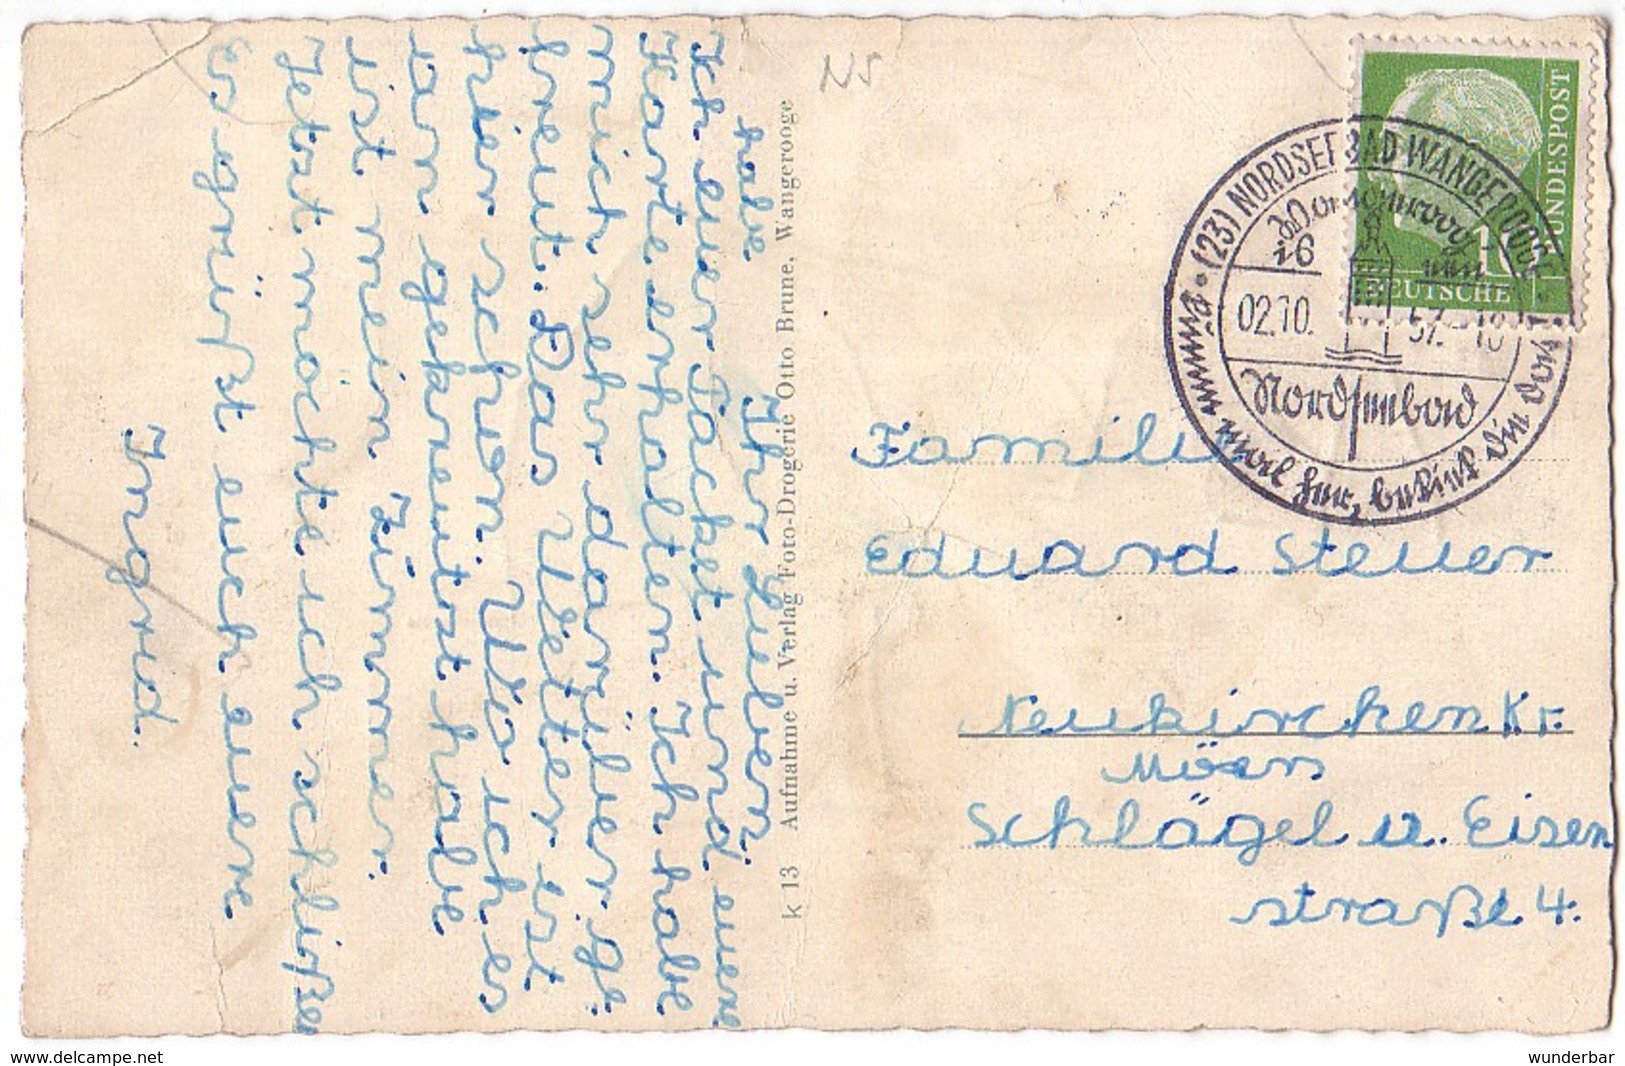 Ihr Lieben.
habe
Ich euer Packet und euere
Karte erhalten. Ich habe
mich sehr darüber ge-
freut. Das Wetter ist
hier schon. Wo ich es
an gekreutzt habe
ist mein Zimmer.
Jetzt möchte ich schlißen
Es egrüßt euch euere
Ingrid.
k 13 Aufnahme u. Verlag Foto-Drogerie Otto Brune, Wangerooge
N5
DEUTSCHE
BUNDESPOST
10
(23) NORDSEEBAD WANGEROOGE
02.10.
57.-18
Nordseebad
Familie
Eduard Steuer
Neukirchen Kr.
Mörs
Schlägel u. Eisen
straße 4.
delcampe.net
wunderbar